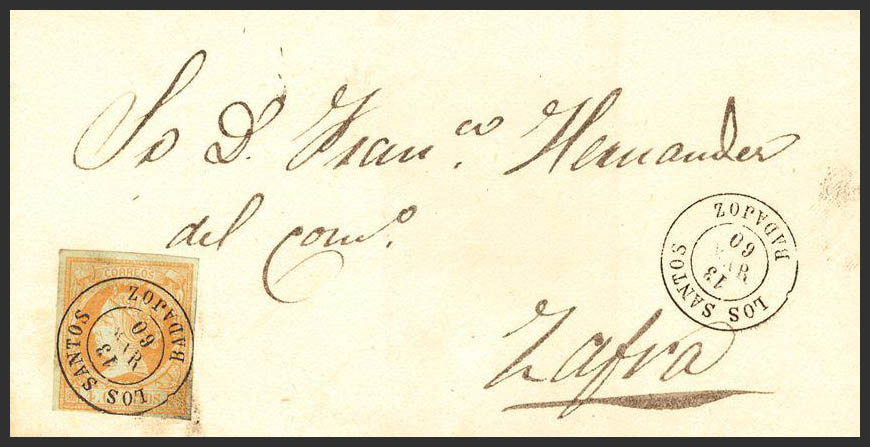 Sr D. Franco. Hernandez
del como.
Zafra
CORREOS
LOS SANTOS
BADAJOZ
13
MAR
60
LOS SANTOS
BADAJOZ
13
MAR
60